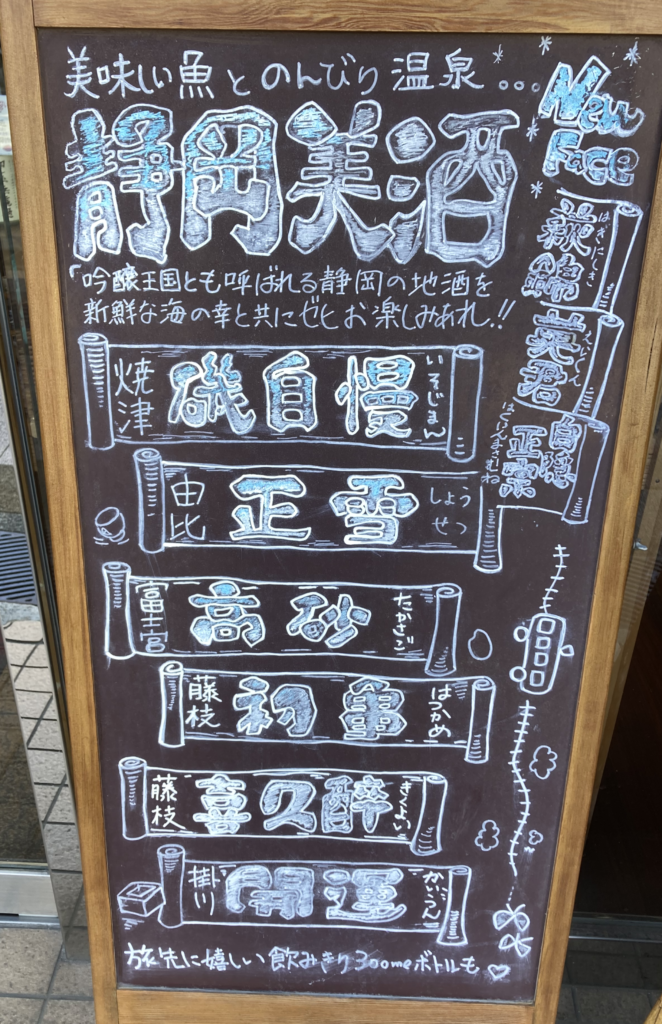 美味しい魚とのんびり温泉...
静岡美酒
吟醸王国とも呼ばれる静岡の地酒を
新鮮な海の幸と共にゼヒお楽しみあれ!!
New
Face
萩錦 はぎにしき
英君 えいくん
白隠正宗 はくいんまさむね
焼津 磯自慢 いそじまん
由比 正雪 しょうせつ
富士宮 高砂 たかさご
藤枝 初亀 はつかめ
藤枝 喜久醉 きくよい
掛川 開運 かいうん
旅先に嬉しい飲みきり300mlボトルも♡